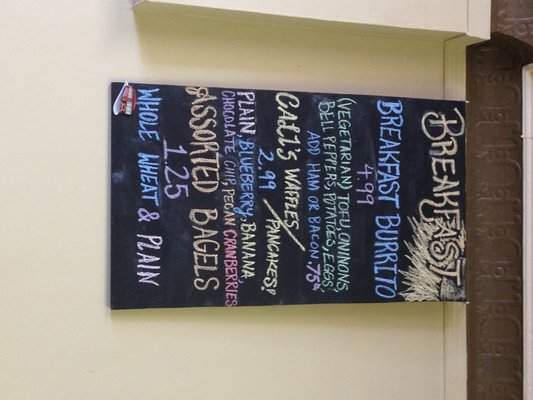 BREAKFAST
BREAKFAST BURRITO
4.99
(VEGETARIAN) TOFU, ONINONS,
BELL PEPPERS, POTATOES, EGGS,
ADD HAM OR BACON .75¢
CALI'S WAFFLES/
PANCAKES!
2.99
PLAIN, BLUEBERRY, BANANA,
CHOCOLATE CHIP, PECAN, CRANBERRIES
ASSORTED BAGELS
1.25
WHOLE WHEAT & PLAIN